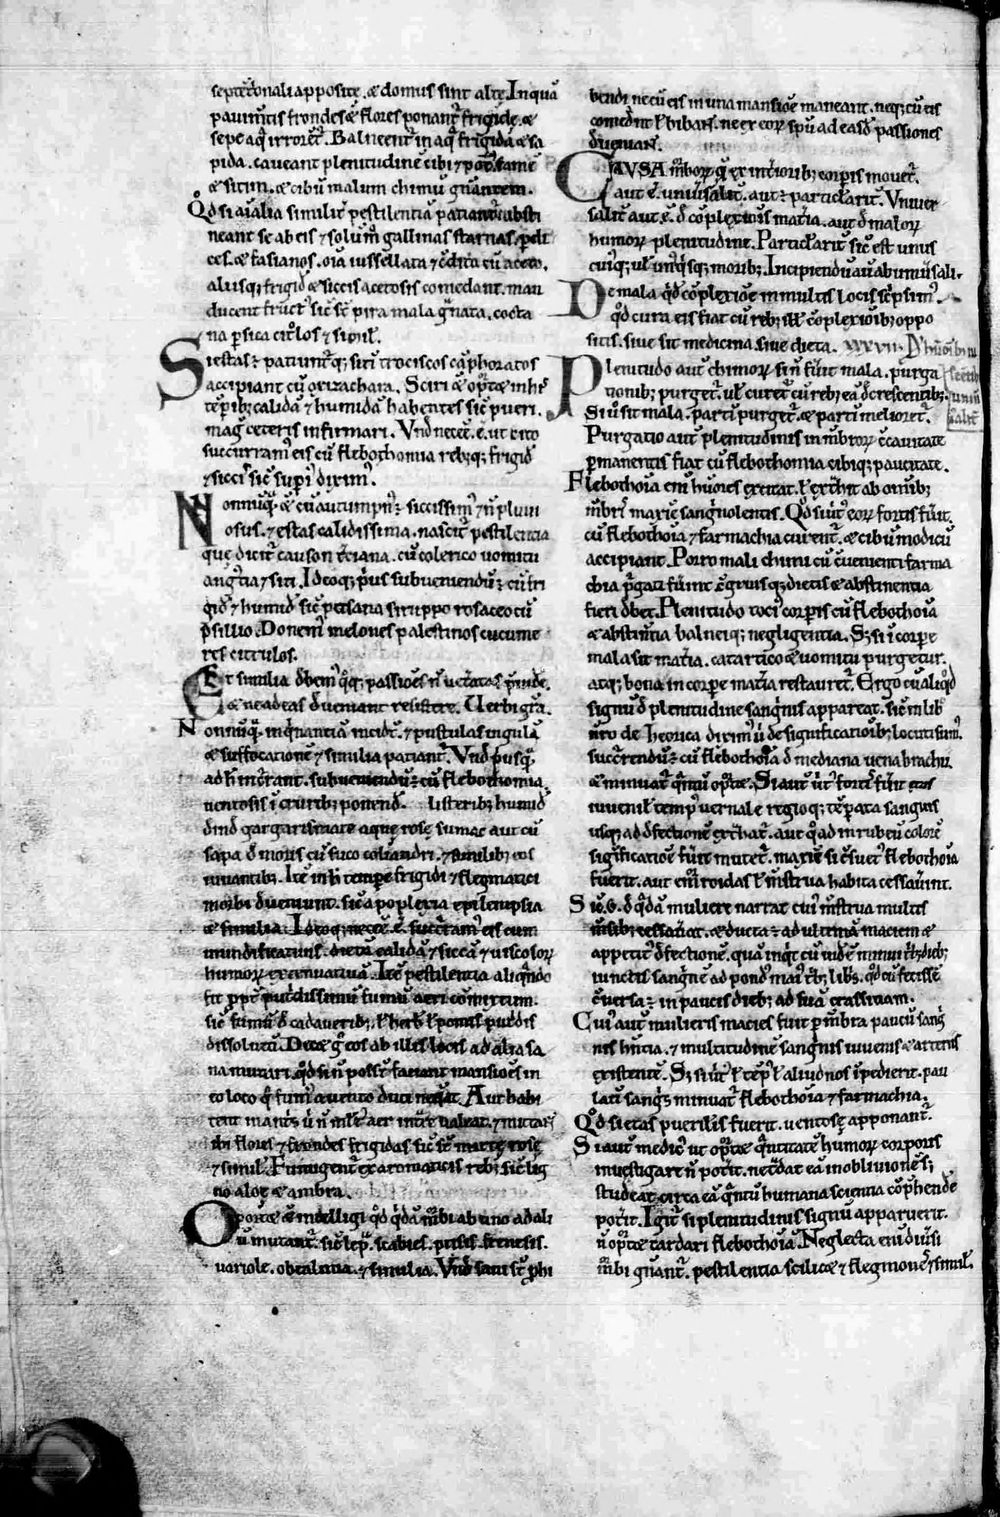 septētrionali apposite. & domus sint alte. In qua
pauimtis frondes & flores ponant̄ frigide. &
sepe aq̄ irroret̄. Balneent̄ in aq̄ frigida & sa
pida. caueant plenitudinē cibi & pot̄. famē
& sitim. & cibū malum chimū gnantem.
Qd̄ si aīalia similit̄ pestilentiā patiant̄ absti
neant se ab eis ⁊ solum̄ gallinas starnas. pdi
ces. & fasianos. oīa iussellata ⁊ cdita cū aceto.
aliisq; frigid̄ & siccis acetosis comedant. man
ducent fruct̄ sic̄ st̄ pira mala gnata. cocta
na psica citlos ⁊ simil̄.
Si estas ē patiunt̄q; siti trociscos cāphoratos
accipiant cū oxizachara. Sciri & opt̄& in h̄
tēpib; calida ⁊ humida habentes sic̄ pueri.
mag̉ ceteris infirmari. Vnd̄ necē. ē. ut cito
succurram̉ eis cū flebothomia reb; q; frigid̄
⁊ siccis sic̄ supi dixim̉.
Nonnūq̄. & cū autumpn̉ ē siccissim̉ ⁊ n̄ pluui
osus. ⁊ estas calidissima. nascit̄ pestilentia
que dicit̄ causon tciana. cū colerico uomitu
angtia ⁊ siti. Ideoq; p̉us subueniendū ē cū fri
gid̄ ⁊ humid̄ sic̄ ptisana siruppo rosaceo cū
psillio. Donem̉ melones palestinos cucume
res citrulos.
Et similia dbem̉ q̉q; passiōes n̄ uetatas puide.
& ne ad eas deueniant resistere. Uerbi gra.
Nonnūq̄. inq̄nantia incidt̄. ⁊ pustulas in gula
& suffocationē ⁊ similia patiant̄. Vnd̄ pusq̄
ad h̄ incrrant. subueniendū ē cū flebothomia.
uentosis ī crurib; ponend̄. listerib; humid̄
dind̄ gargarismate aque rose sumac aut cū
sapa d̄ moris cū suco coliandri. ⁊ similib; eos
iuuantib;. Itē in h̄ tempe frigidi ⁊ flegmatici
morbi dueniunt. sic̄ apoplexia epilempsia
& similia. Ideoq; necē. ē. succrram̉ eis cum
mundificatiuis. dieta calida ⁊ sicca ⁊ uiscolor̄
humor̄ extenuatiua. Itē pestilentia aliqndo
fit ppt̄ putdissimū fumū aeri cōmixtum.
sic̄ fumū d̄ cadauerib;. l̄ herb̄ l̄ pomis putdis
dissolutū. Dec& g̉ eos ab illis locis ad alia sa
na mutari. qd̄ si n̄ possr̄ faciant mansiōes in
eo loco q̉ fum̉ a uento duci neq̄at. Aut habi
tent
ibi flores ⁊ frondes frigidas sic̄ st̄ mirte rose
⁊ simil̄. Fumigent̄ ex aromaticis reb; sic̄ lig
no aloe & ambra.
Oport& & intelligi qd̄ qdā mbi ab uno ad ali
ū mutant̄. sic̄ lepra. scabies. ptisis. frenesis.
uariole. obtalmia. ⁊ similia. Vnd̄ sani st̄ phi
bendi ne cū eis in una mansiōe maneant. neq; cū eis
comedint l̄ bibant. ne ex eor̄ spū ad easd̄ passiones
dueniant.
CAVSA mbor̄ q̄ ex intiorib; corpis mouet̄.
aut ē. uniusalit̄. aut ē particlarit̄. Vniuer
salit̄ aut ē. d̄ cōplexiōis matia. aut d̄ malor̄
humor̄ plenitudine. Particlarit̄ sic̄ est unus
cuiq; ul̄ unq̉sq; morib;. Incipiendū au ab uniūsali.
De mala qd̄ cōplexiōe in multis locis scpsim̉.
qd̄ cura eis fiat cū reb; ill̄ cōplexiōib; oppo
sitis. siue sit medicina siue dieta. xxxvii. D hūorib; in
Plenitudo aut̄ chimor̄ si n̄ fuit mala. purga
tionib; purget̄. ul̄ curet̄ cū reb; eā dcrescentib;.
Si ū sit mala. parti purget̄. & parti melioret̄.
Purgatio aut̄ plenitudinis in mbror̄ ccauitate
pmanentis fiat cū flebothomia cibiq; paucitate.
Flebothoīa eni hūores excitat. l̄ extht ab omib;
mbris maxie sangnolentis. Qd̄ si uit̉ eor̄ fortis fuit.
cū flebothoīa ⁊ farmachia curent̄. & cibū modicū
accipiant. Porro mali chimi cū cuenienti farma
chia pgati fuint cgruisq; dietis & abstinentia
fieri dbet. Plenitudo tocỉ corpis cū flebothoīa
& abstintia balneiq; negligentia. S; si ī corpe
mala sit matia. catartico & uomitu purgetur.
atq; bona in corpe matia restauret̄. Ergo cū aliqd̄
signū d̄ plenitudine sangnis appareat. sic̄ in lib̄
nro de theorica dixim̉ ū de significatioib; locuti sum̉.
succrrendū ē cū flebothoīa d̄ mediana uena brachii.
& minuat̄ qntū opt̄&. Si aut̄ uit̉ fort̄ fuit
iuuenil̄ temp̉ uernale regioq; tēpata sanguis
usq; ad dfectionē extrhat̄. aut q̉ ad in rubeū colorē
significatiōe fuit mutet̄. maxie si csuet̉ flebothoīa
fuerit. aut emroidas l̄ mstrua habita cessauint.
Sic̄.G. d̄ qdā muliere narrat cuỉ mstrua multis
msib; cessarat. & ducta ē ad ultimā maciem &
appetit̉ dfectionē. qua inqt cū uidē minui trib; dieb;
iunctis sangne ad pond̉ maỉ trib; libs. qd̄ cū fecissē
cuersa ē in paucis dieb; ad suā crassitiam.
Cuỉ aut̄ mulieris macies fuit p mbra paucū sang
nis hntia. ⁊ multitudinē sangnis in uenis & arteriis
existente. S; si uit̉ l̄ tēp̉ l̄ aliud nos ipedierit. pau
lati sangs minuat̄ flebothoīa ⁊ farmachia.
Qd̄ si etas puerilis fuerit. uentose apponant̄.
Si aut̄ medic̉ ut opt̄& qntitatē humor̄ corporis
inuestigare n̄ potit. ne tdat eā in obliuionē. s;
studeat circa eā qntū humana scientia cōphende
potit. Igit̄ si plenitudinis signū apparuerit.
n̄ opt̄& tardari flebothoīa. Neglecta eni diūsi
mbi gnant̄. pestilentia scilic& ⁊ flegmone ⁊ simil̄.